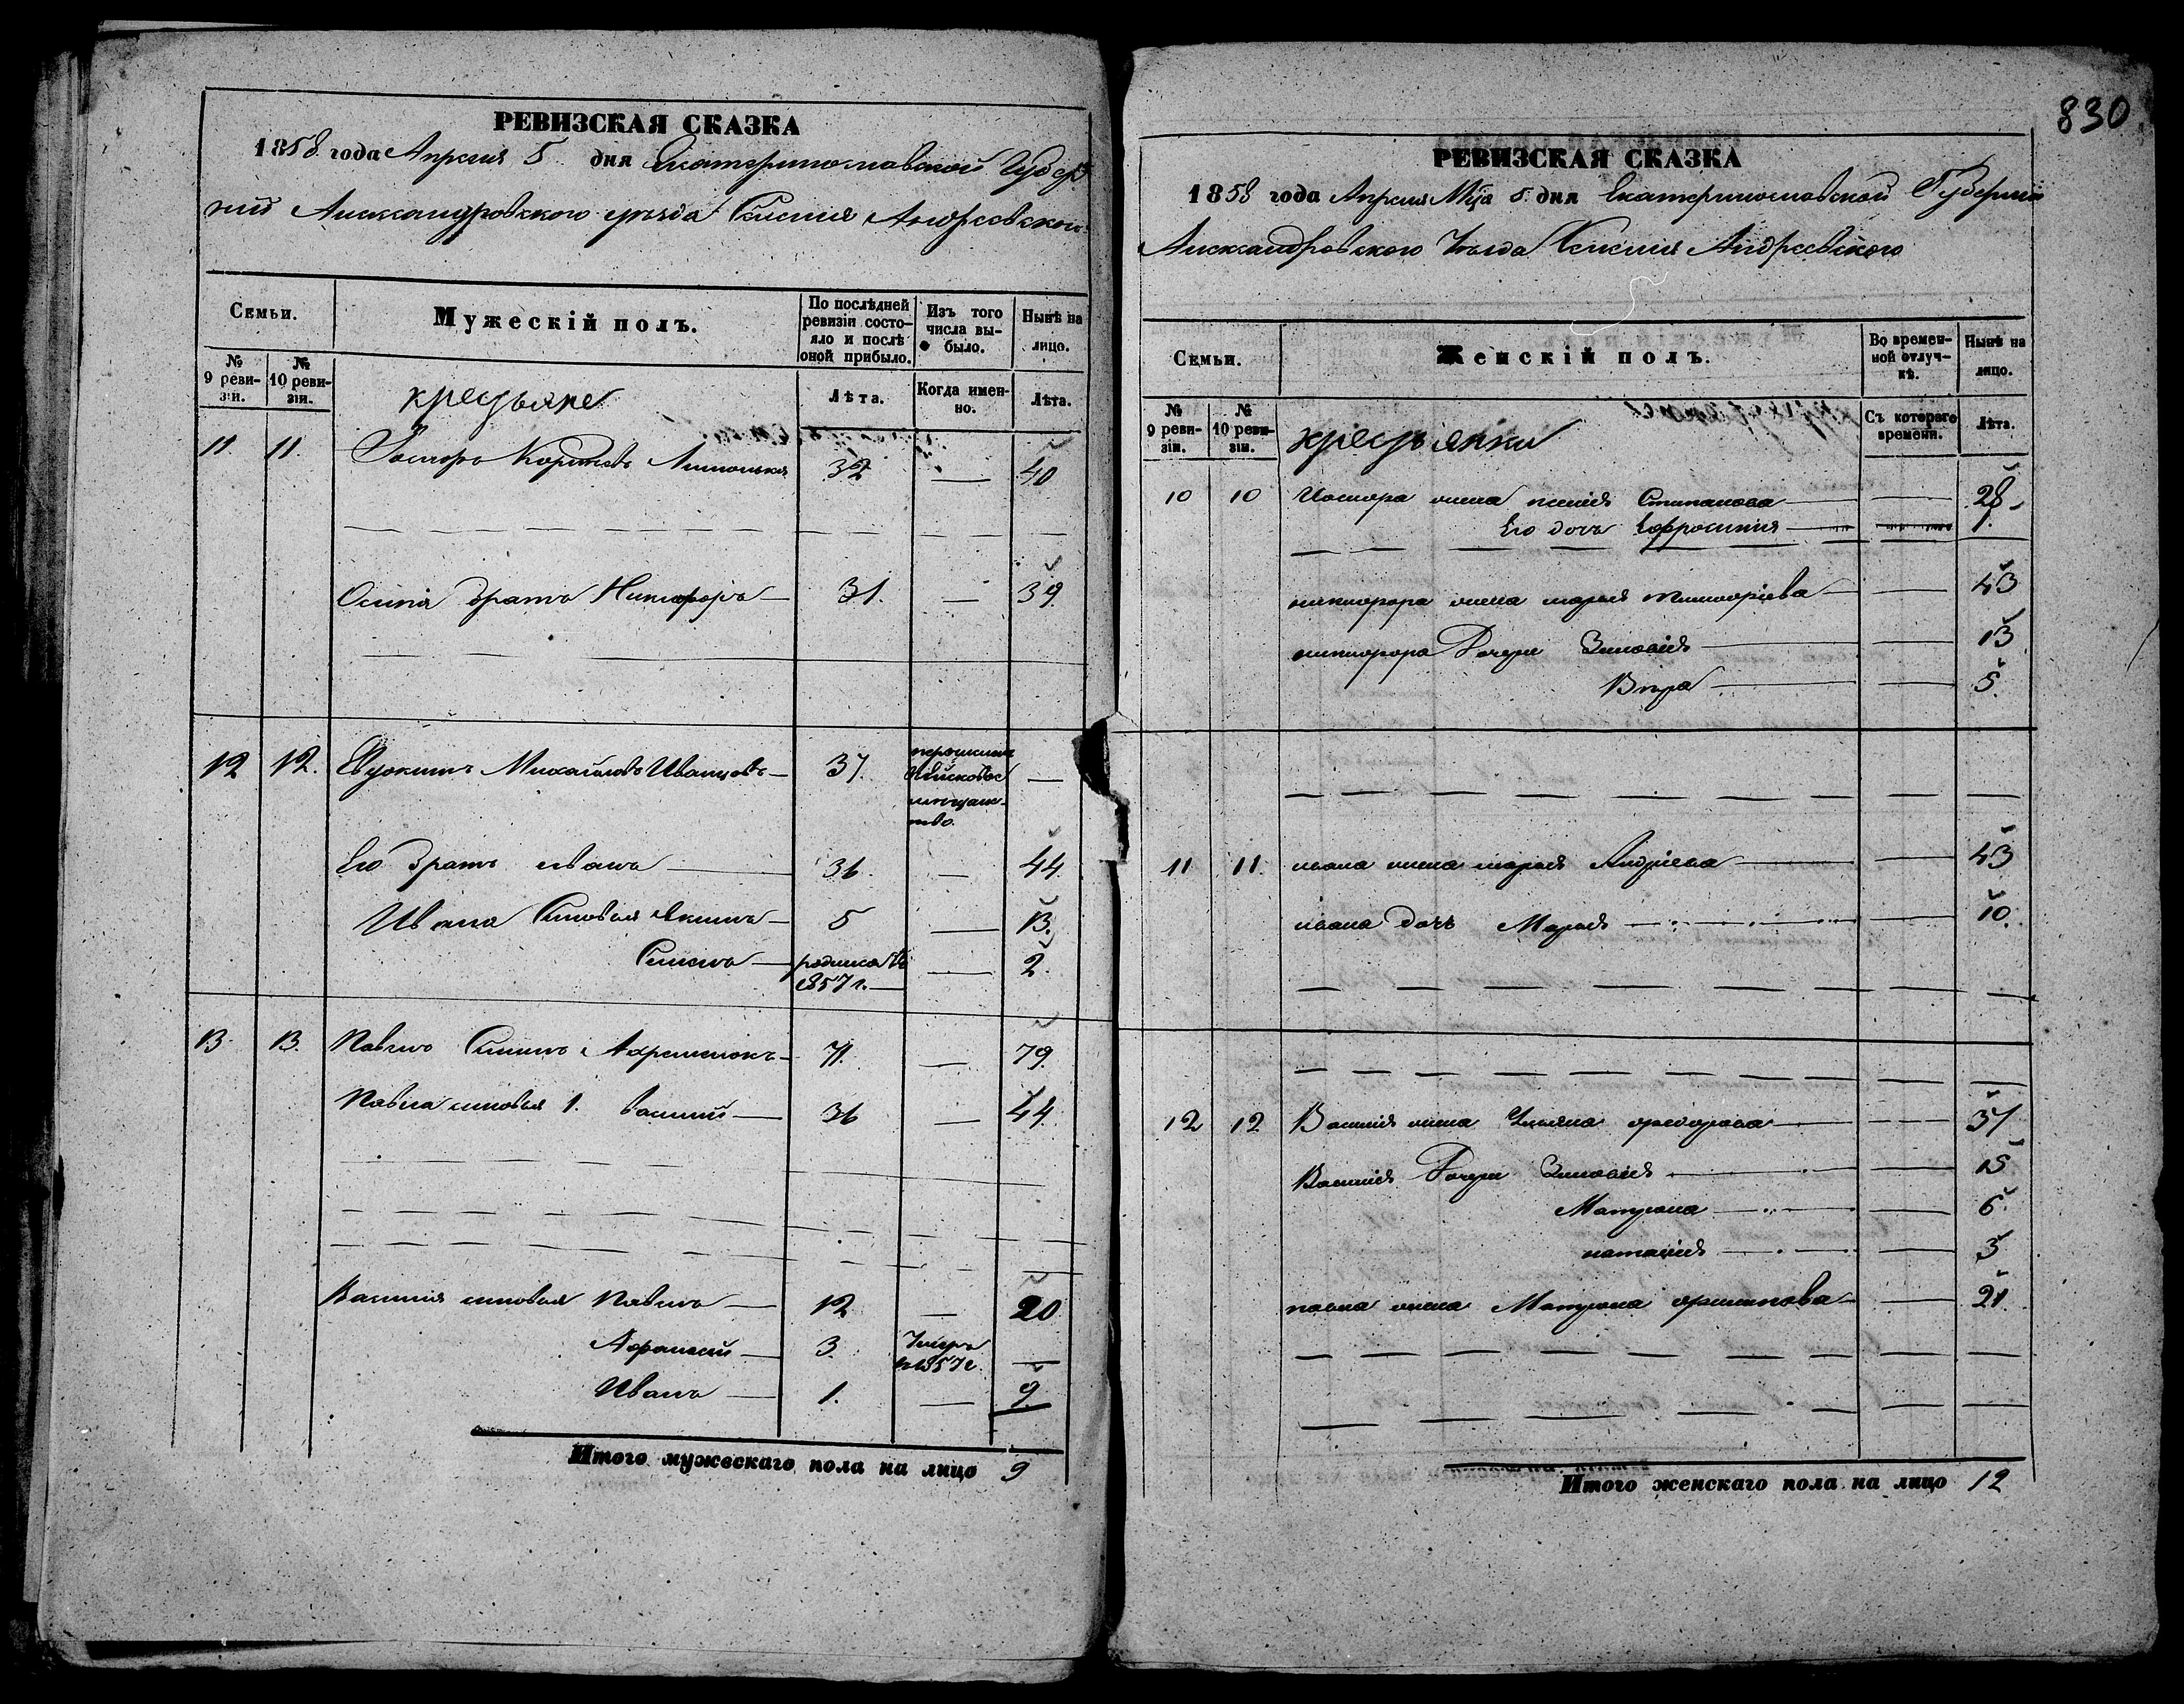 РЕВИЗСКАЯ СКАЗКА
1858 года Апреля 5 дня Екатеринославской Губер
нии Александровского уезда Селения Андреевского
Семьи.
№ 9 ревизіи.
№ 10 ревизіи.
Мужескій полъ.
крестьяне
По послѣдней ревизіи состояло и послѣ оной прибыло.
Лѣта.
Изъ того числа выбыло.
Когда именно.
Нынѣ на лицо.
Лѣта.
11. 11. 32 — 40
братъ Никифоръ — 31. — 39.
12 12. Евдокимъ Михайловъ Иванцовъ — 37. —
Его братъ иванъ — 36. — 44.
Ивана Сыновья — 5 — 13.
Семенъ — 1857 г. — — 2.
13. 13. Павелъ — 71. — 79.
Павла сыновья 1. василий — 36 — 44.
Василия сыновья Павелъ — 12 — 20
Афанасий — 3. Умеръ
1857 г. —
Иванъ — 1. — 9.
Итого мужескаго пола на лицо 9
830
РЕВИЗСКАЯ СКАЗКА
1858 года Апреля Мца 5. дня Екатеринославской Губернии
Александровского Уезда Селения Андреевского
Семьи.
№ 9 ревизіи.
№ 10 ревизіи.
Женскій полъ.
крестьянки
Во временной отлучкѣ.
Съ котораго времени.
Нынѣ на лицо.
Лѣта.
10 10 жена Степанова — — 28
Его дочь Ефросиния — — 1.
никифора жена марья — — 43
никифора Дочери Зиновия — — 13
Вера — — 5.
11 11. ивана жена марья Андриева — — 43
ивана дочь Марья — — 10.
12 12 Василия жена — — 37
Василия Дочери Зиновия — — 15
Матрона — — 6.
наталия — — 3
павла жена Матрона — — 21.
Итого женскаго пола на лицо 12